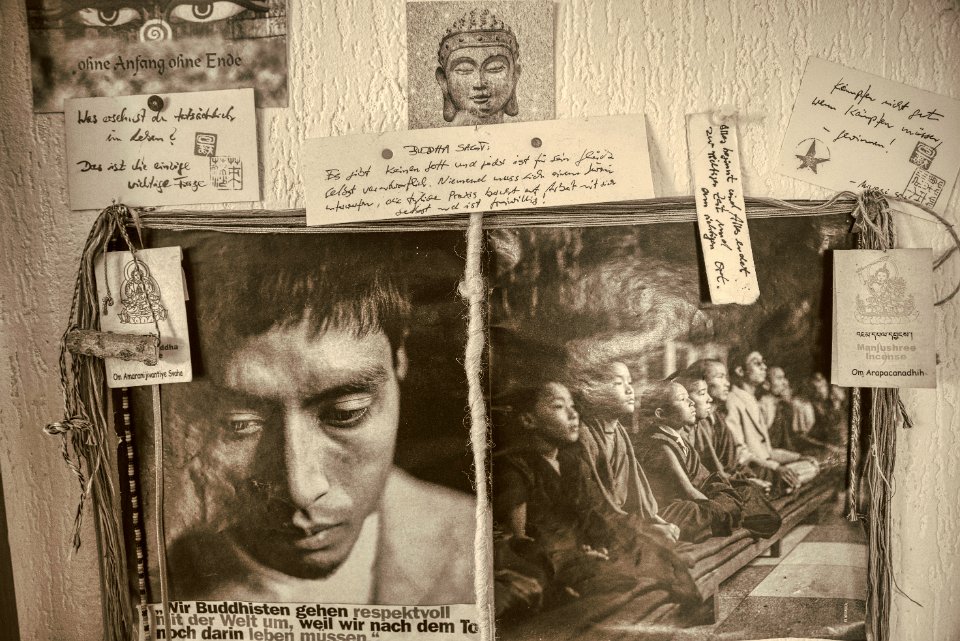 ohne Anfang ohne Ende
Was ersehnst du tatsächlich
im Leben?
Das ist die einzige
wichtige Frage
BUDDHA SAGT:
Es gibt keinen Gott und jeder ist für sein
selbst verantwortlich. Niemand muss sich einem
unterwerfen, die Praxis beruht auf Arbeit mit sich
selbst und ist freiwillig!
Alles beginnt und Alles endet
zur richtigen Zeit und
am richtigen Ort.
Kämpfen nicht gut
wenn Kämpfen müssen
– gewinnen!
Om Amaranijivantiye Svaha
Manjushree
Incense
Om Arapacanadhih
„Wir Buddhisten gehen respektvoll
mit der Welt um, weil wir nach dem To
noch darin leben müssen."